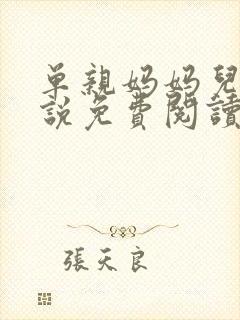 單親媽媽兒
說免費閱讀
張天良